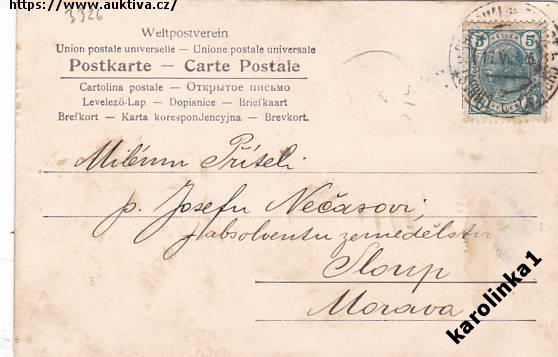 https://www.auktiva.cz/
3326
Weltpostverein
Union postale universelle – Unione postale universale
Postkarte – Carte Postale
Cartolina postale – Открытое письмо
Levelező-Lap – Dopisnice – Briefkaart
Brefkort – Karta korespondencyjna – Brevkort.
5 HELLER 5
Milému Příteli
p. Josefu Nečasovi,
absolventu zemědělství
Sloup
Morava
karolinka1